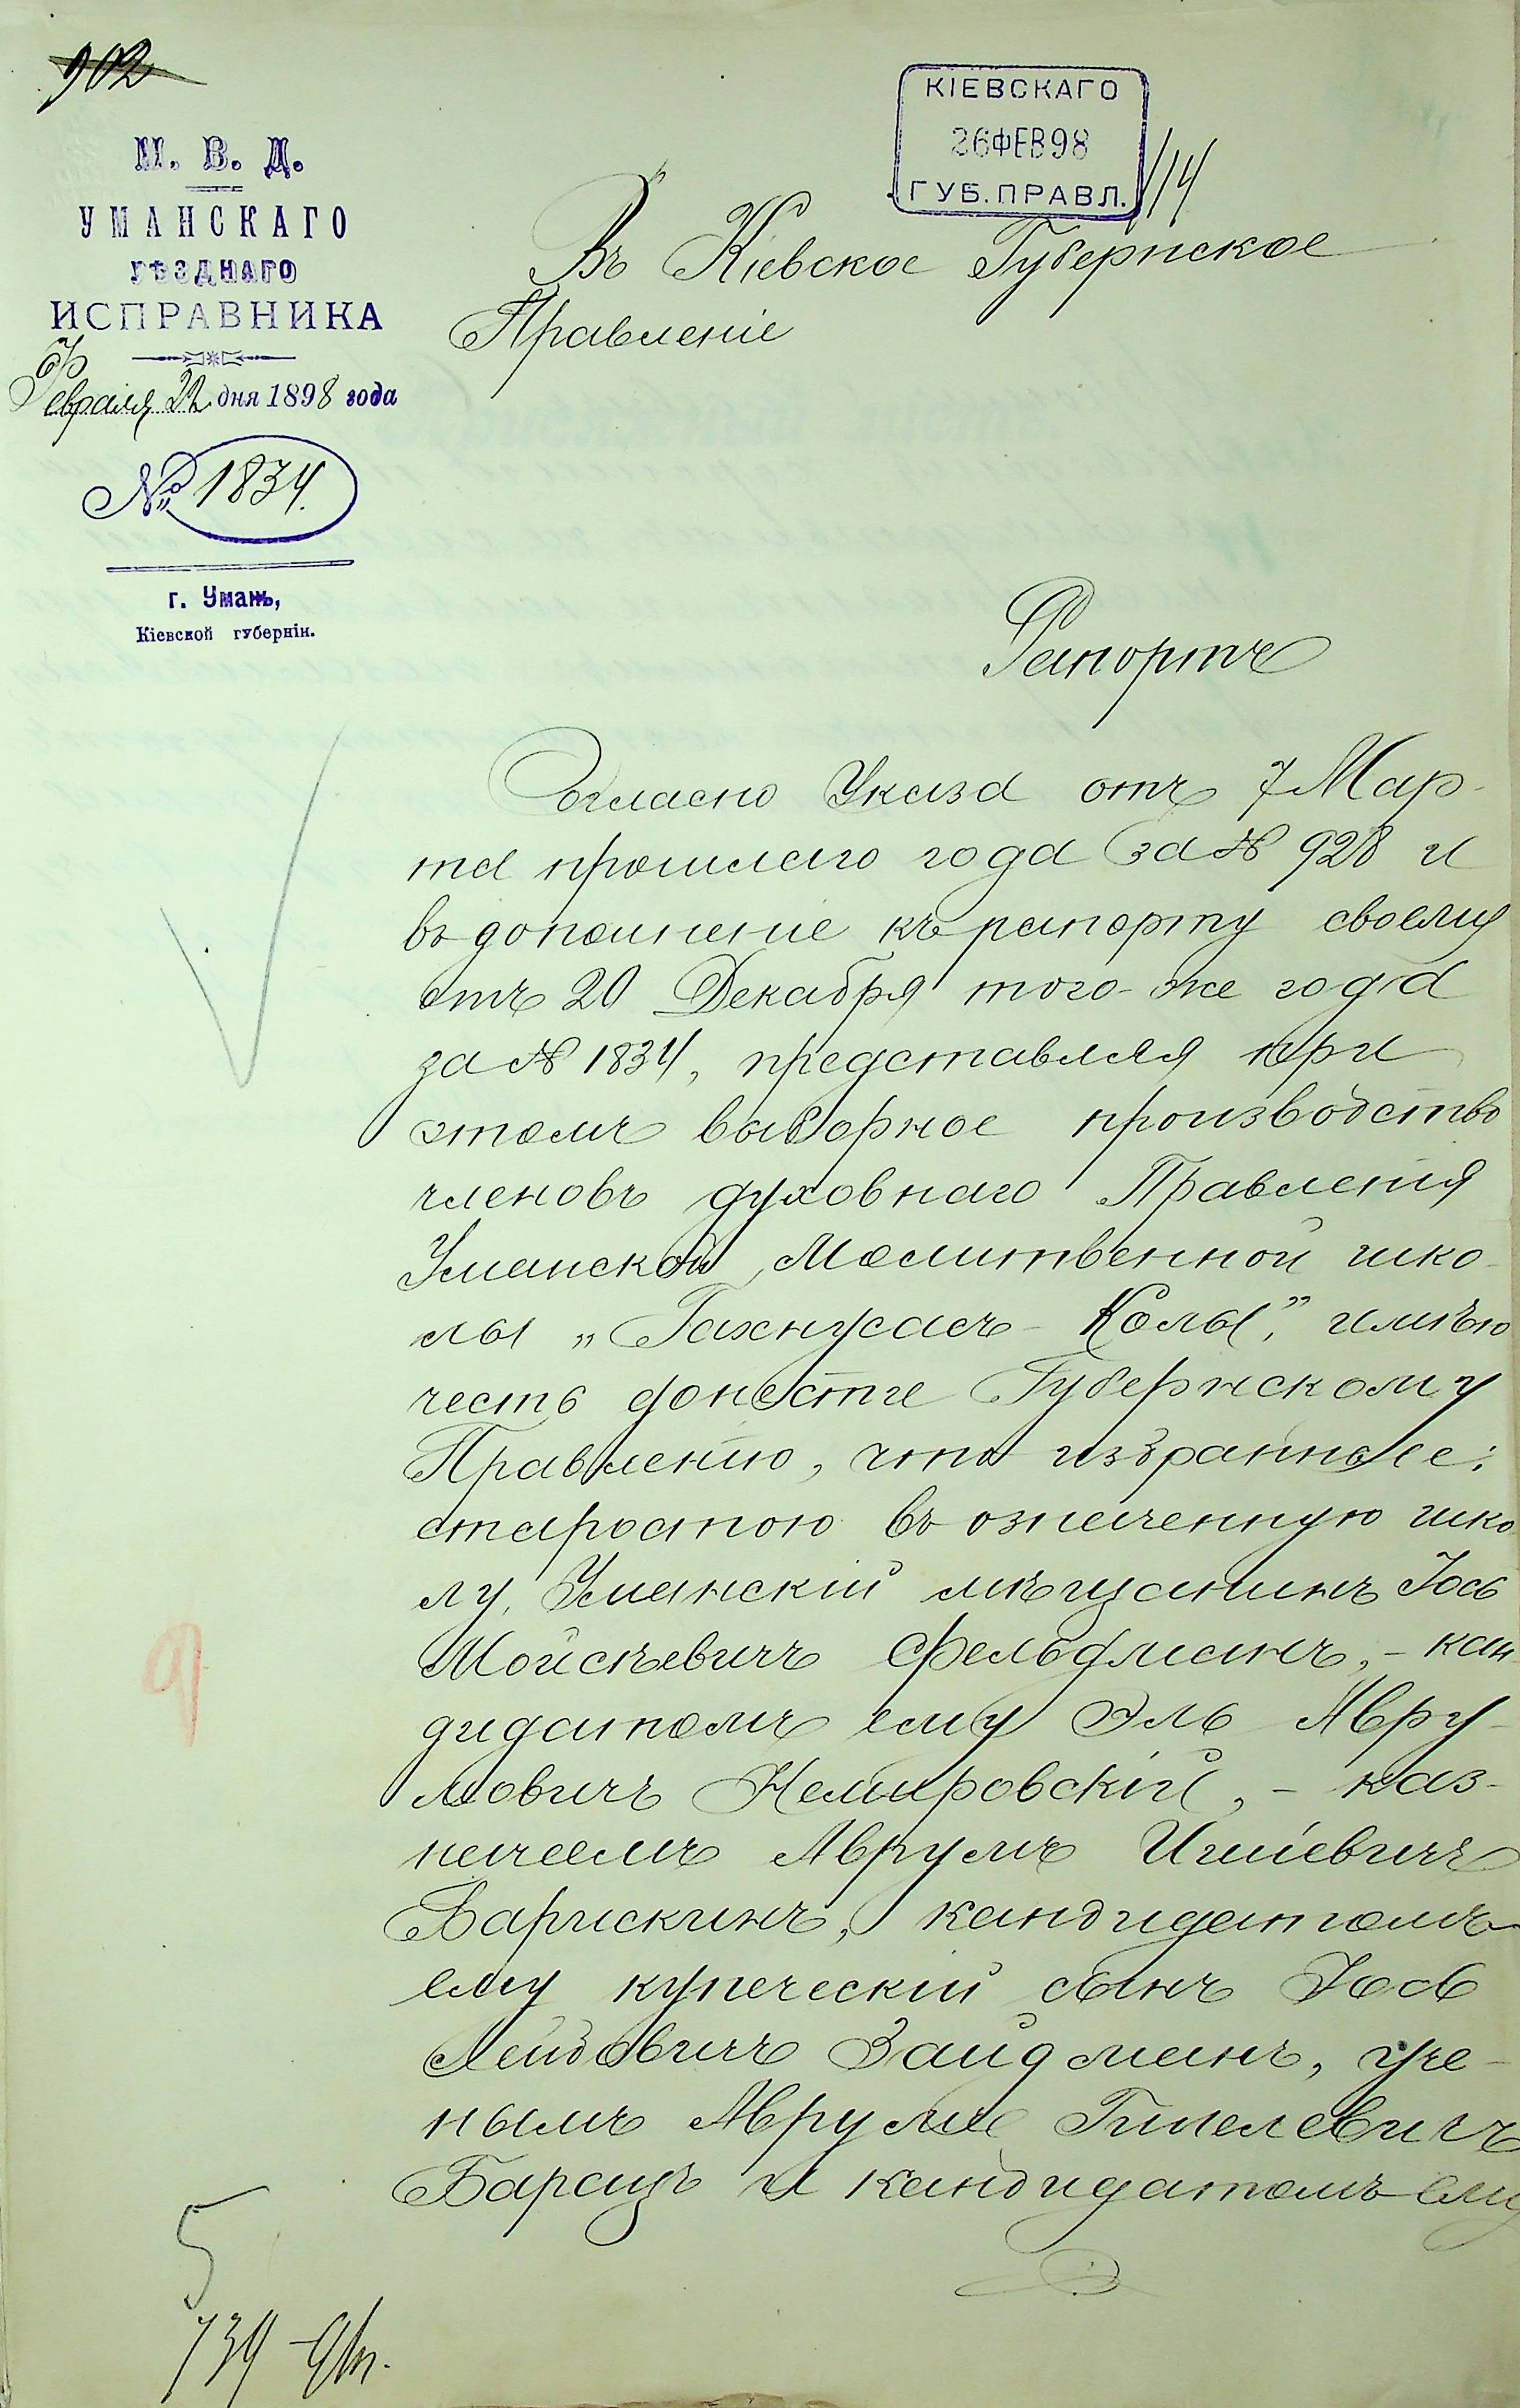 902
М. В. Д.
УМАНСКАГО
УѢЗДНАГО
ИСПРАВНИКА
Февраля 22 дня 1898 года
№ 1834.
г. Умань,
Кіевской губерніи.
КІЕВСКАГО
26 ФЕВ 98
ГУБ. ПРАВЛ.
Въ Кіевское Губернское
Правленіе
Рапортъ
Согласно Указа отъ 7 Мар-
та прошлаго года за № 928 и
въ дополненіе къ рапорту своему
отъ 20 Декабря того-же года
за № 1834, представляя при
этомъ выборное производство
членовъ духовнаго Правленія
Уманской Молитвенной шко-
лы „Гахнусасъ-Калы”, имѣю
честь донести Губернскому
Правленію, что избранные:
старостою въ означенную шко
лу, Уманскій мѣщанинъ Іось
Мойсѣевичъ Фельдманъ, - кан
дидатомъ ему Эль Авру-
мовичъ Немировскій, - каз-
начеемъ Аврумъ Иціевичъ
Барискинъ, кандидатомъ
ему купеческій сынъ Іось
Лейзовичъ Зайдманъ, уче-
нымъ Аврумъ Гшелевичъ
Барацъ и кандидатомъ ему
9
5